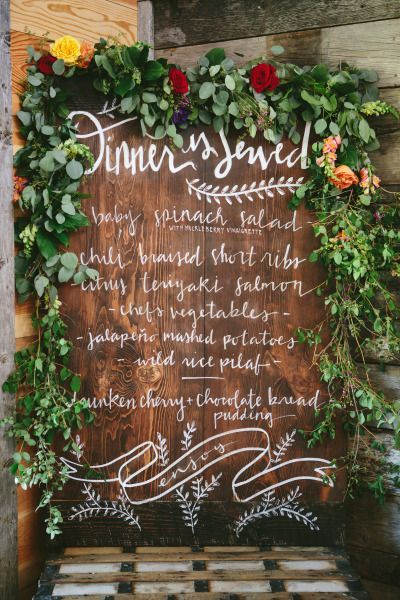 Dinner is Served
baby spinach salad -
WITH HUCKLEBERRY VINAIGRETTE
chili braised short ribs
- citrus teriyaki salmon
- chefs vegetables -
- jalapeño mashed potatoes
- wild rice pilaf -
drunken cherry + chocolate bread
pudding
enjoy